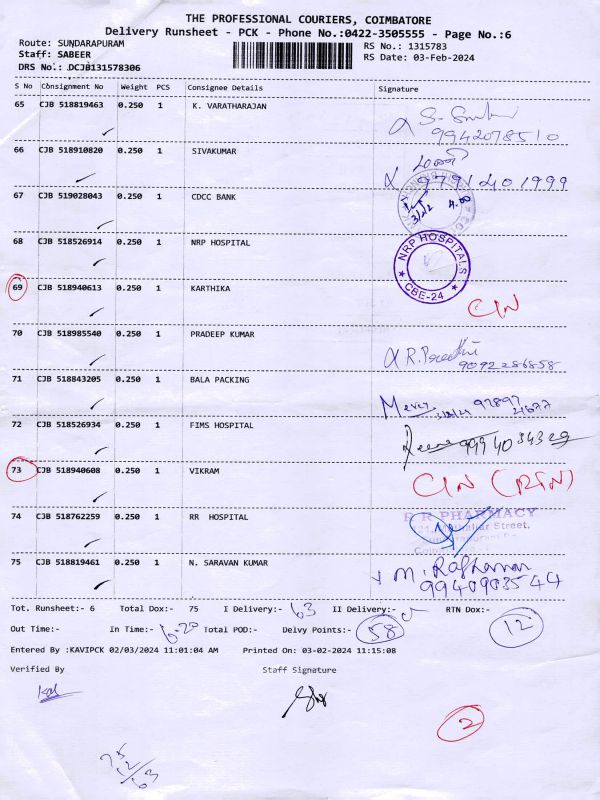 THE PROFESSIONAL COURIERS, COIMBATORE
Delivery Runsheet - PCK - Phone No.:0422-3505555 - Page No.:6
Route: SUNDARAPURAM
RS No.: 1315783
Staff: SABEER
RS Date: 03-Feb-2024
DRS No.: DCJB131578306
S No Consignment No Weight PCS Consignee Details Signature
65 CJB 518819463 0.250 1 K. VARATHARAJAN
9942078510
66 CJB 518910820 0.250 1 SIVAKUMAR
9791401999
67 CJB 519028043 0.250 1 CDCC BANK
3/2/2 4.00
68 CJB 518526914 0.250 1 NRP HOSPITAL
NRP HOSPITALS
CBE-24
69 CJB 518940613 0.250 1 KARTHIKA
CIN
70 CJB 518985540 0.250 1 PRADEEP KUMAR
9092286858
71 CJB 518843205 0.250 1 BALA PACKING
Mercy 97897
72 CJB 518526934 0.250 1 FIMS HOSPITAL
73 CJB 518940608 0.250 1 VIKRAM
CIN (RTN)
74 CJB 518762259 0.250 1 RR HOSPITAL
R R PHARMACY
Street,
75 CJB 518819461 0.250 1 N. SARAVAN KUMAR
M.
9940903544
Tot. Runsheet:- 6 Total Dox:- 75 I Delivery:- 63 II Delivery:- RTN Dox:- 12
Out Time:- In Time:- 6-20 Total POD:- Delvy Points:- 58
Entered By :KAVIPCK 02/03/2024 11:01:04 AM Printed On: 03-02-2024 11:15:08
Verified By Staff Signature
2
75
12
63